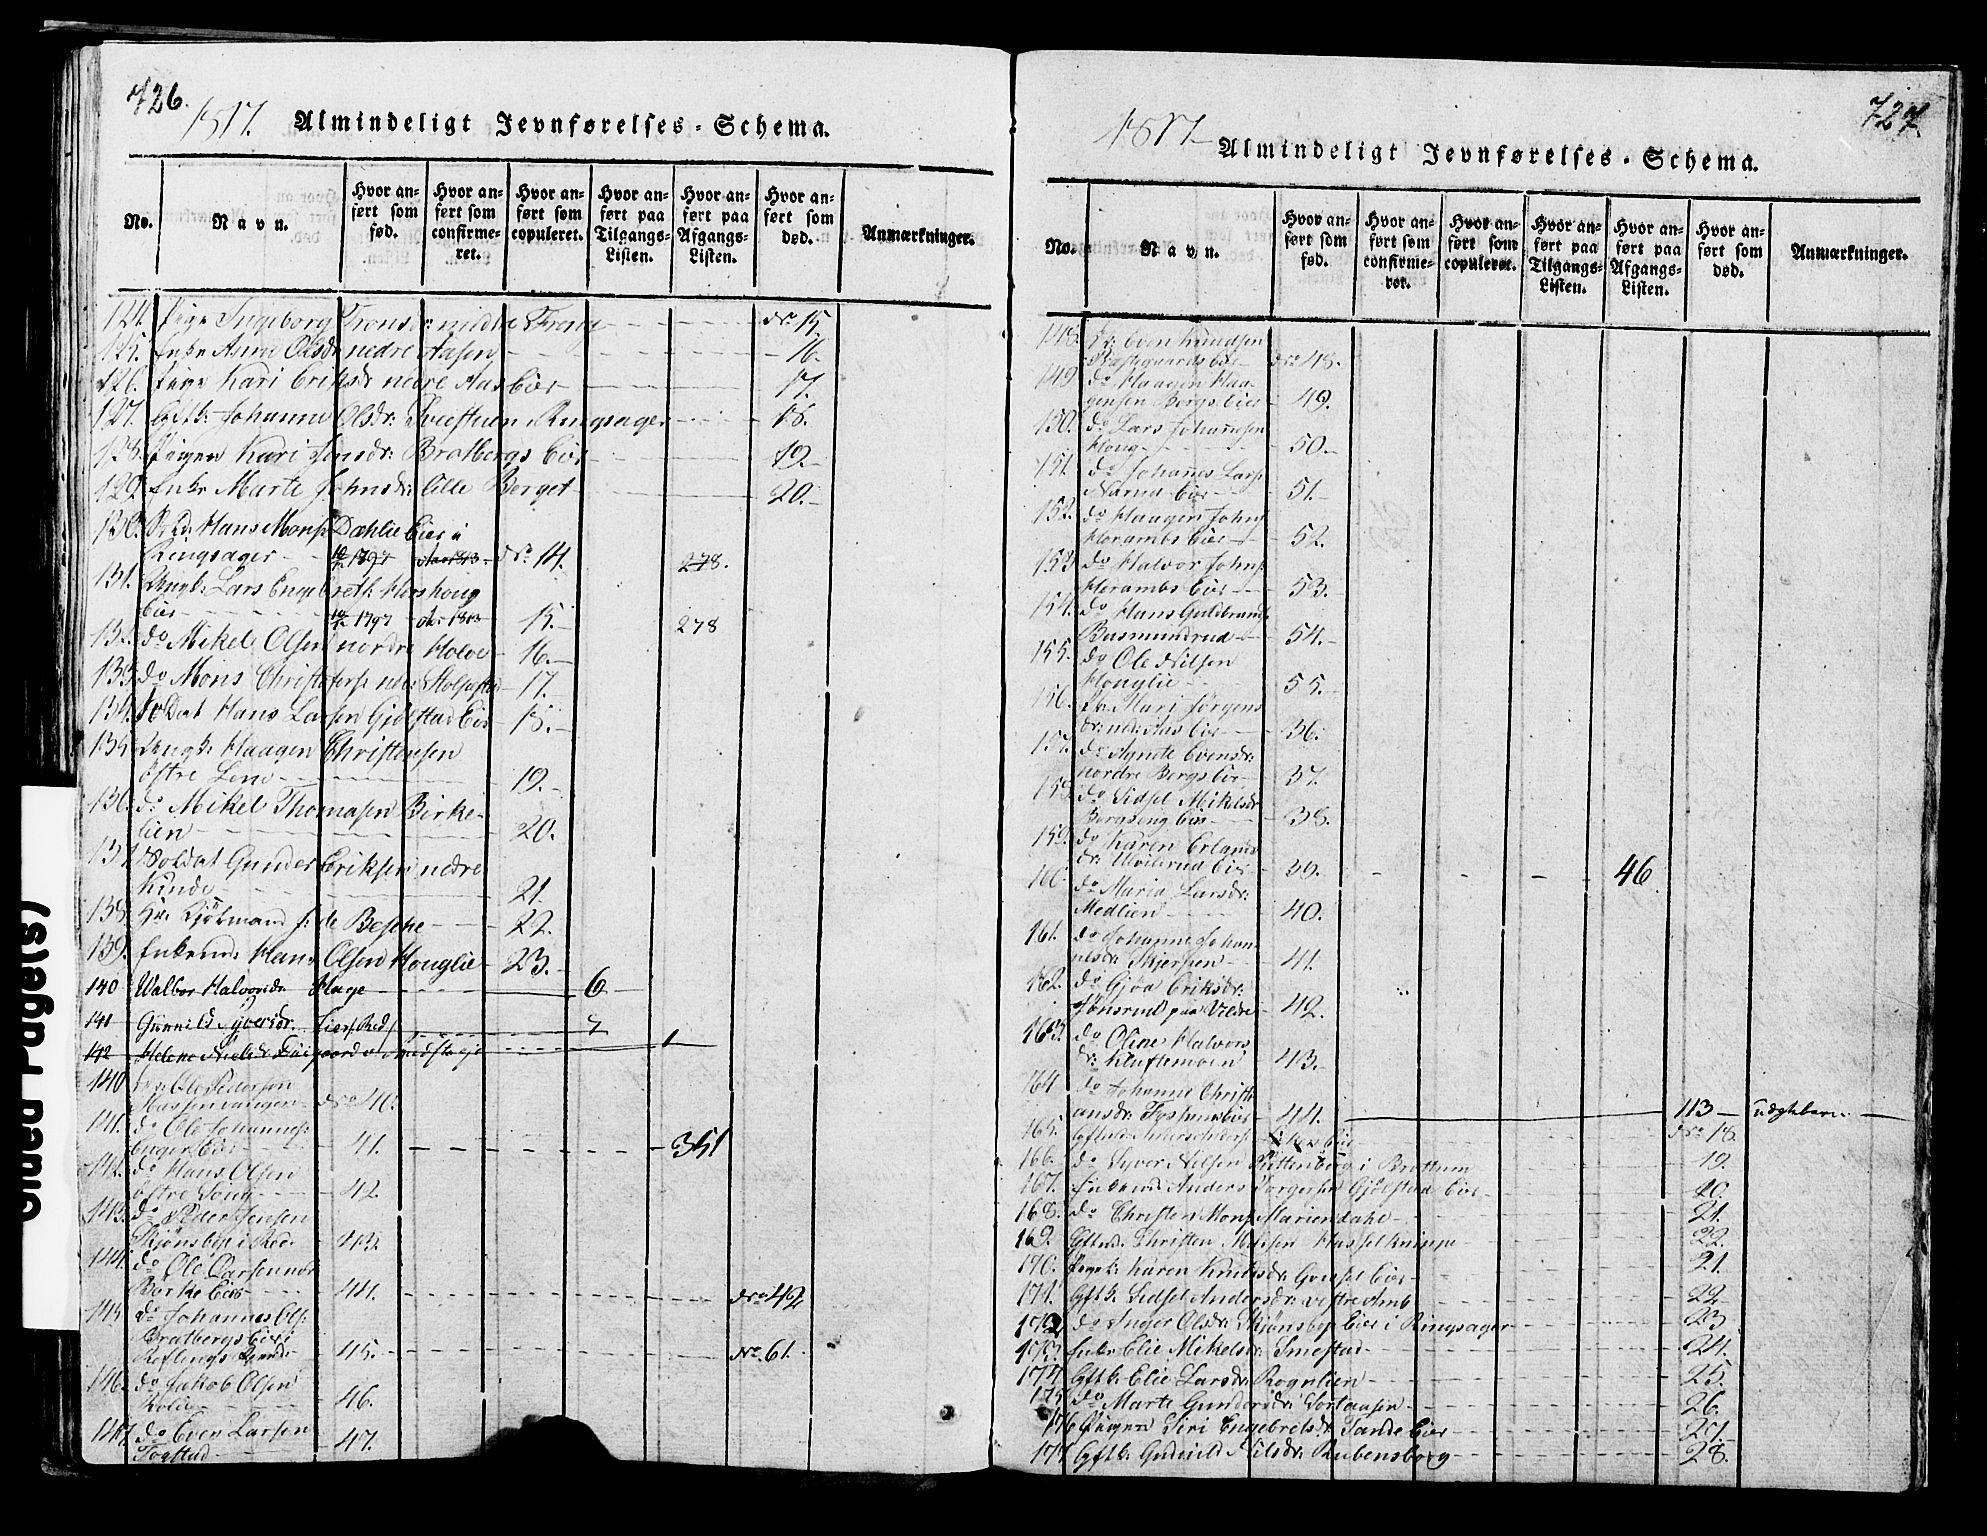 726.
1817. Almindeligt Jevnførelses-Schema.
No. Navn. Hvor anført som fød. Hvor anført som confirmeret. Hvor anført som copuleret. Hvor anført paa Tilgangs-Listen. Hvor anført paa Afgangs-Listen. Hvor anført som død. Anmærkninger.
124. Pige Ingeborg Tronsdr: nedre Freng No. 15.
125. Enke Anne Olsdr nedre Aasen 16.
126. Pige Kari Eriksdr nedre Aas Eier 17.
127. Gftk: Johanne Olsdr: Ringsager 18.
128. Pigen Kari Jensdr: Bratbergs Eier 19.
129. Enke Marte Johnsdr: lille Berget 20.
130. Sold: Hans Monsen Dæhlie Eier i
Ringsager 1797 Aar 1813 No. 14. 278.
131. Ungk: Lars Engebreth: Hershoug
Eier 1797 1813 15. 278
132. do Mikel Olsen nordre Holve 16.
133. do Mons Christophers: nedre Stolpestad 17.
134. Soldat Hans Larsen Gjølstad Eier 18.
135. Ungk: Haagen Christensen
østre Lene 19.
136. do Mikel Thomasen Birke-
lien 20.
137. Soldat Gunder Eriksen nedre
Kinde 21.
138. Hr. Kjølmand f: de Besche 22.
139. Enkemd: Hans Olsen Houglie 23.
140 Walbor Halvorsdr Hage 6
141 Gunnild Syversdr. Eier Red 7
142 Helene Nielsdr 1
140 Dr: Ole Pedersen
Massenvangen No. 40.
141. do Ole Johannes:
Enger Eier 41. 351
142. do Hans Olsen
østre Soug 42.
143. do Peder Jensen
Skjønsby i Red. 43.
144. do Ole Larsen ner
Børke Eier 44. No. 42
145 do Johannes Ols:
Bratbergs Eier i
45. No. 61.
146. do Jakob Olsen
Rolie 46.
147. do Even Larsen
Togstad 47.
727
1817 Almindeligt Jevnførelses-Schema.
No. Navn. Hvor anført som fød. Hvor anført som confirmeret. Hvor anført som copuleret. Hvor anført paa Tilgangs-Listen. Hvor anført paa Afgangs-Listen. Hvor anført som død. Anmærkninger.
148. Dr: Even Knudsen
Bæsteguards Eier No. 48.
149 do Haagen Haa-
gensen Bergs Eier 49.
150. do Lars Johannesen
Houg 50.
151. do Johanes Lars:
Narud Eier 51.
152. do Haagen Johns:
Horambs Eier 52.
153 do Halvor Johns:
Horambs Eier 53.
154. do Hans Guldbrands:
Busmundrud 54.
155. do Ole Nilsen
Houglie 55.
156. Pk: Mari Jørgens
dr: ned: Aas Eier 36.
157. do Agnete Evensdr:
nordre Bergs Eier 37.
158. do Sidsel Mikelsdr
Bergseng Eier 38.
159. do Karen Erlands
dr: Ulvilsrud Eier 39. 46
160. do Maria Larsdr:
Medlien 40.
161. do Johanne Johan
nesdr: Skjersen 41.
162. do Gjøa Eriksdr:
Jonsrud paa Veldre 42.
163. do Oline Halvors
dr: Kluftemoen 43.
164 do Johanne Christi
ansdr: Eier 44. 113 uægtebarn.
165. Gftmd: Anders Eier No. 18.
166. do Syver Nilsen i Brøttum 19.
167. Enkemd: Anders Torgersen Gjølstad Eier 20.
168. do Christen Mons: Mariendahl 21.
169. Gftmd: Christen Hasselknippe 22.
170. Pigek: Karen Knudsdr: Eier 21.
171. Gftk: Sidsel Andersdr: vestre Amb 22.
172 do Inger Olsdr: Skjønsby Eier i Ringsager 23
173 Enke Elie Mikelsdr: Smestad 24.
174 Gftk: Elie Larsdr: Rognlien 25.
175 do Marte Gundersdr: 26.
176 Pigen Siri Engebretsdr: Sande Eier 27.
177 Gftk: Gunild Nilsdr: Rubensborg 28.